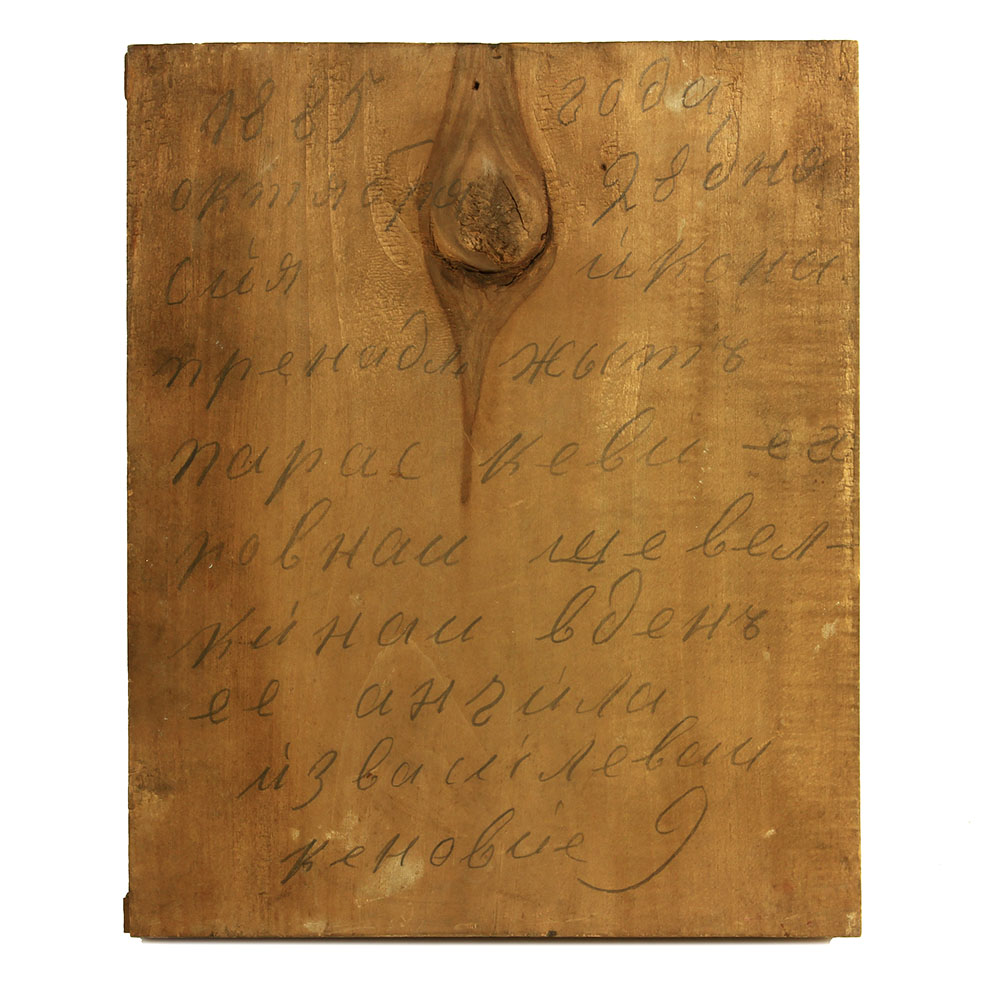 1885 года
октября 28 дно
сия икони
пренадлжытъ
парас кеви ег
ровнаи щевел-
кинаи вденъ
ее ангила
извасилеваи
кеновие